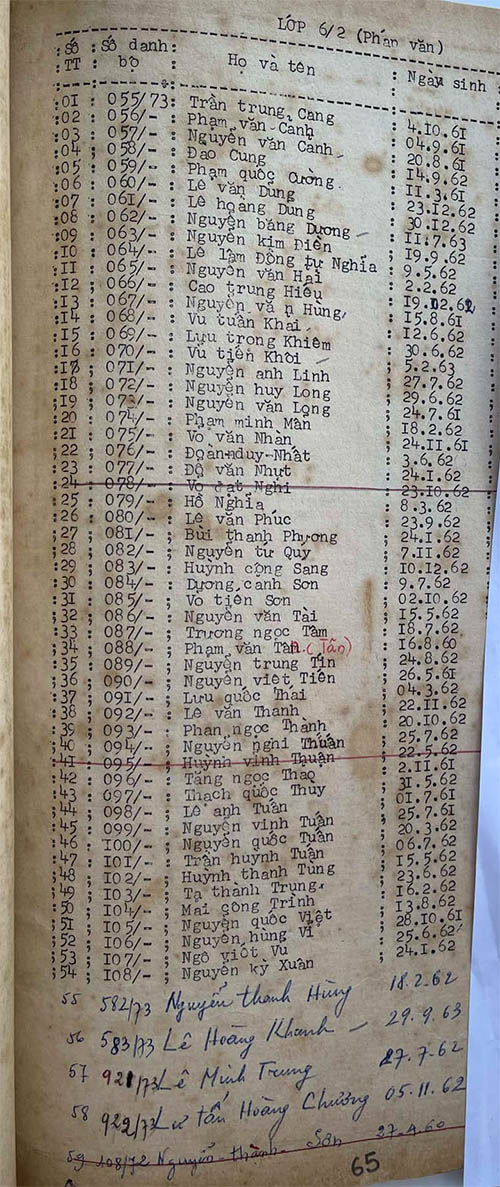 LỚP 6/2 (Pháp văn)
Số TT : Số danh bộ : Họ và tên : Ngày sinh
:01 : 055/73: Trần trung Cang : 4.10.61
:02 : 056/- : Phạm văn Canh : 04.9.61
:03 : 057/- : Nguyễn văn Canh : 20.8.61
:04 ; 058/- : Đào Cung : 14.9.62
:05 : 059/- : Phạm quốc Cường : 11.3.61
:06 : 060/- : Lê văn Dũng : 23.12.62
:07 : 061/- : Lê hoàng Dung : 30.12.62
:08 : 062/- : Nguyễn băng Dương : 11.7.63
:09 : 063/- : Nguyễn kim Điền : 19.9.62
:10 : 064/- : Lê lam Động tự Nghĩa : 9.5.62
:11 : 065/- : Nguyễn văn Hai : 2.2.62
:12 : 066/- : Cao trung Hiếu : 19.02.62
:13 : 067/- : Nguyễn vă n Hùng : 15.8.61
:14 : 068/- : Vũ tuấn Khai : 12.6.62
:15 : 069/- : Lưu trong Khiêm : 30.6.62
:16 : 070/- : Vũ tiến Khôi : 5.2.63
:17 : 071/- : Nguyễn anh Linh : 27.7.62
:18 : 072/- : Nguyễn huy Long : 29.6.62
:19 : 073/- : Nguyễn văn Long : 24.7.61
:20 : 074/- : Phạm minh Mẫn : 18.2.62
:21 : 075/- : Võ văn Nhàn : 24.11.61
:22 ; 076/- : Đoàn duy Nhất : 3.6.62
:23 : 077/- : Đỗ văn Nhựt : 24.1.62
:24 : 078/- : Võ đạt Nghi : 23.10.62
:25 : 079/- : Hồ Nghĩa : 8.3.62
:26 : 080/- : Lê văn Phúc : 23.9.62
;27 ; 081/- ; Bùi thanh Phương : 24.1.62
:28 : 082/- ; Nguyễn tư Quý : 7.11.62
:29 ; 083/- ; Huỳnh công Sang : 10.12.62
:30 : 084/- ; Dương cảnh Sơn : 9.7.62
:31 : 085/- ; Võ tiến Sơn : 02.10.62
:32 ; 086/- ; Nguyễn văn Tài : 15.5.62
:33 : 087/- ; Trương ngọc Tâm : 18.7.62
;34 ; 088/- ; Phạm văn Tân (Tấn) : 16.8.60
:35 : 089/- ; Nguyễn trung Tín : 24.8.62
:36 ; 090/- ; Nguyễn việt Tiến : 26.5.61
:37 : 091/- ; Lưu quốc Thái : 04.3.62
:38 ; 092/- ; Lê văn Thanh : 22.11.62
:39 ; 093/- ; Phan ngọc Thành : 20.10.62
:40 ; 094/- ; Nguyễn nghi Thuấn : 25.7.62
:41 : 095/- ; Huỳnh vinh Thuận : 22.5.62
:42 : 096/- ; Tăng ngọc Thạo : 2.11.61
:43 ; 097/- ; Thạch quốc Thuỵ : 31.5.62
;44 ; 098/- ; Lê anh Tuấn : 01.7.61
;45 ; 099/- ; Nguyễn vinh Tuấn : 25.7.61
:46 : 100/- ; Nguyễn quốc Tuấn : 20.3.62
:47 : 101/- ; Trần huỳnh Tuấn : 06.7.62
;48 ; 102/- ; Huỳnh thanh Tùng : 15.5.62
;49 ; 103/- ; Tạ thành Trung : 23.6.62
:50 ; 104/- ; Mai công Trinh : 16.2.62
;51 ; 105/- ; Nguyễn quốc Việt : 13.8.62
;52 ; 106/- ; Nguyễn hùng Vĩ : 28.10.61
;53 ; 107/- ; Ngô viết Vũ : 25.6.62
;54 ; 108/- ; Nguyễn kỳ Xuân : 24.1.62
55 582/73 Nguyễn thanh Hùng 18.2.62
56 583/73 Lê Hoàng Khanh - 29.9.63
57 921/73 Lê Minh Trung 27.7.62
58 922/73 Lư Tấn Hoàng Chương 05.11.62
59 108/72 Nguyễn thành Sơn 27.4.60
65